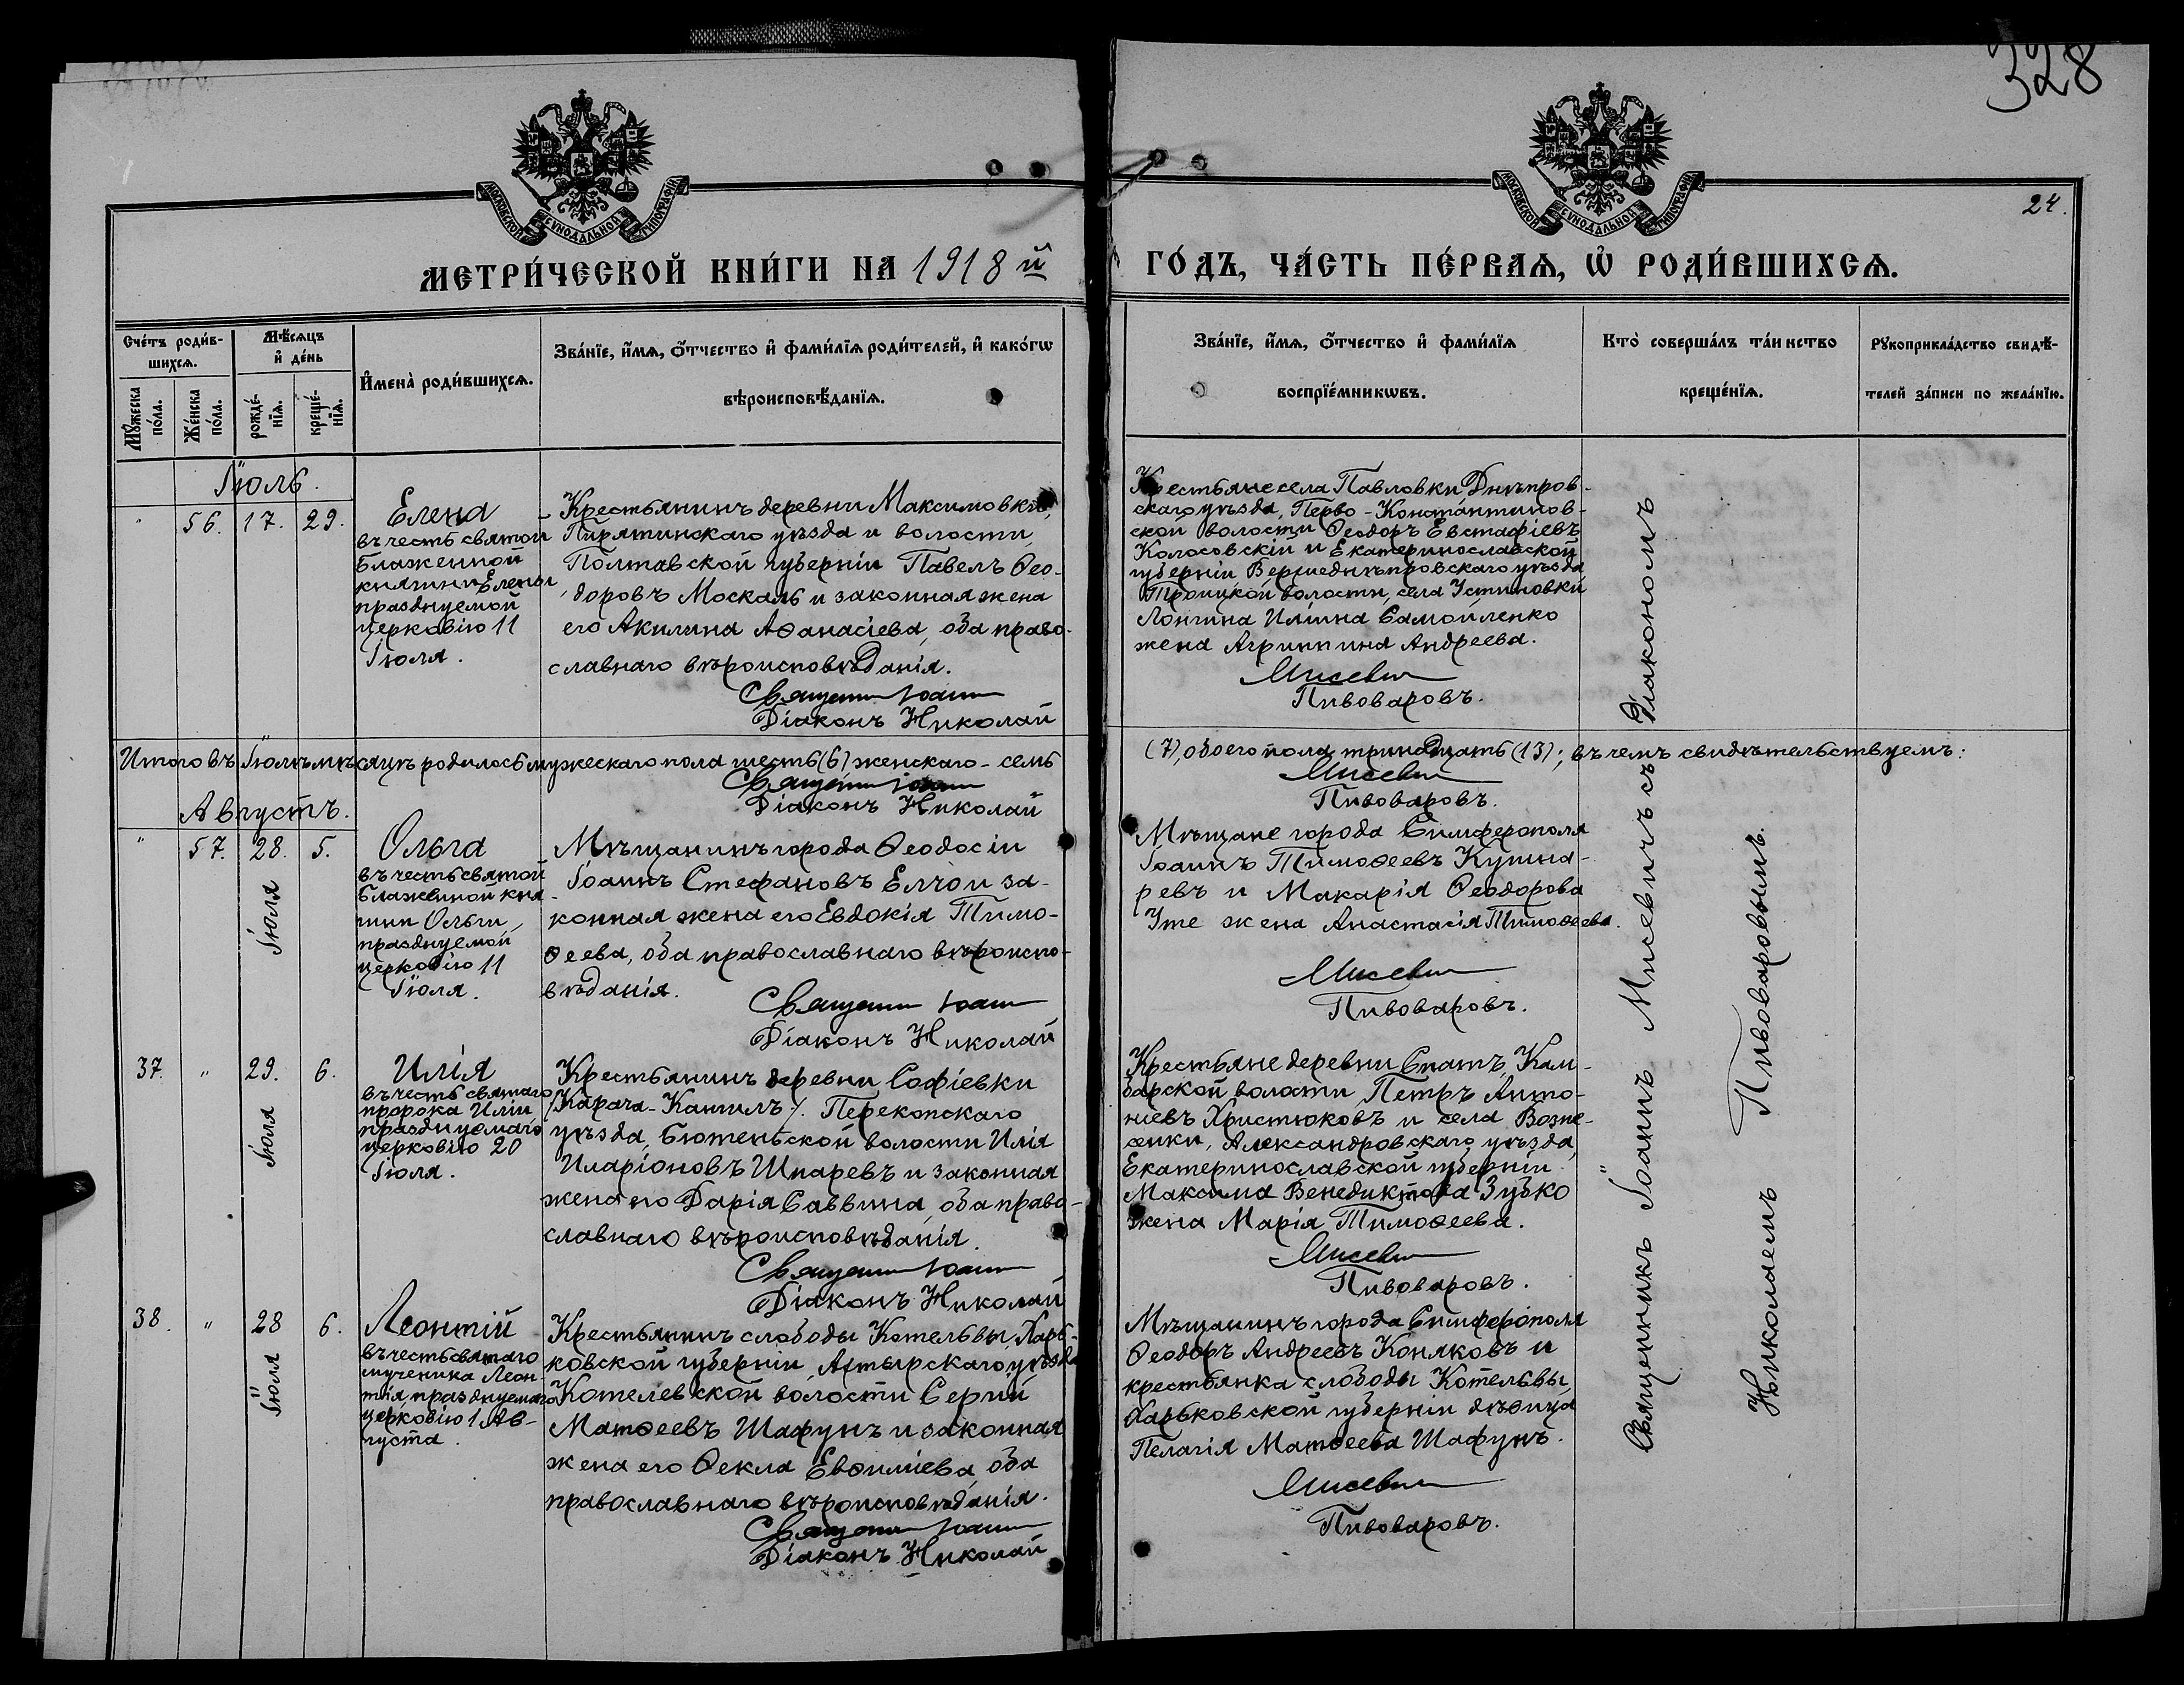 328
24.
МОСКОВСКОЙ СѴНОДАЛЬНОЙ ТИПОГРАФІИ
МОСКОВСКОЙ СѴНОДАЛЬНОЙ ТИПОГРАФІИ
МЕТРИ́ЧЕСКОЙ КНИ́ГИ НА 1918 й ГО́ДЪ, ЧА́СТЬ ПЕ́РВАѦ, Ѡ҆ РОДИ́ВШИХСѦ.
Сче́тъ роди́в-
шихсѧ.
Мꙋ́жеска по́ла.
Же́нска по́ла.
Мѣ́сѧцъ и҆ де́нь
рожде́-нїѧ.
креще́-нїѧ.
И҆мена̀ роди́вшихсѧ.
Зва́нїе, и҆́мѧ, ѻ҆́тчество и҆ фами́лїѧ роди́телей, и҆ како́гѡ
вѣроисповѣ́данїѧ.
Зва́нїе, и҆́мѧ, ѻ҆́тчество и҆ фами́лїѧ
воспрїе́мникѡвъ.
Кто̀ соверша́лъ та́инство
креще́нїѧ.
Рꙋкоприкла́дство свидѣ́-
телей за́писи по жела́нїю.
Іюль.
" 56. 17. 29.
Елена
въ честь святой
блаженной
княгини Елены
празднуемой
церковію 11
Іюля.
Крестьянинъ деревни Максимовки,
Пирятинскаго уѣзда и волости,
Полтавской губерніи Павелъ Ѳео-
доровъ Москаль и законная жена
его Акилина Аѳанасіева, оба право-
славнаго вѣроисповѣданія.
Священн Іоанн
Діаконъ Николай
Крестьяне села Павловки Днѣпров-
скаго уѣзда, Перво-Константинов-
ской волости Ѳеодоръ Евстафіевъ
Колосовскій и Екатеринославской
губерніи Верхнеднѣпровскаго уѣзда
Троицкой волости, села Устиновки
Лонгина Иліина Самойленко
жена Агриппина Андреева.
Мисевич
Пивоваровъ.
Итого въ Іюлѣ мѣсяцѣ родилось мужескаго пола шесть (6) женскаго - семь
(7), обоего пола тринадцать (13); въ чемъ свидѣтельствуемъ:
Священн Іоанн
Діаконъ Николай
Мисевич
Пивоваровъ.
Августъ.
" 57. 28. 5.
Іюля
Ольга
въ честь святой
блаженной кня-
гини Ольги,
празднуемой
церковію 11
Іюля.
Мѣщанинъ города Ѳеодосіи
Іоаннъ Стефановъ Елчои за-
конная жена его Евдокія Тимо-
ѳеева, оба православнаго вѣроиспо-
вѣданія.
Священн Іоанн
Діаконъ Николай
Мѣщане города Симферополя
Іоаннъ Тимоѳеевъ Кушна-
ревъ и Макарія Ѳеодорова
Уте жена Анастасія Тимоѳеева.
Мисевич
Пивоваровъ.
37. " 29. 6.
Іюля
Илія
въ честь святаго
пророка Иліи
празднуемаго
церковію 20
Іюля.
Крестьянинъ деревни Софіевки
/Карача-Кангилъ/. Перекопскаго
уѣзда, Бютеньской волости Илія
Иларіоновъ Шпаревъ и законная
жена его Дарія Саввина, оба право-
славнаго вѣроисповѣданія.
Священн Іоанн
Діаконъ Николай
Крестьяне деревни Спатъ, Кам-
барской волости Петръ Анто-
ніевъ Христюковъ и села Возне-
сенки, Александровскаго уѣзда,
Екатеринославской губерніи
Максима Венедиктова Зубко
жена Марія Тимоѳеева.
Мисевич
Пивоваровъ.
38. " 28 6.
Іюля
Леонтій
въ честь святаго
мученика Леон-
тія, празднуемаго
церковію 1 Ав-
густа.
Крестьянинъ слободы Котельвы, Харь-
ковской губерніи, Ахтырскаго уѣзда
Котелевской волости Сергій
Матѳеевъ Шафунъ и законная
жена его Ѳекла Евѳиміева, оба
православнаго вѣроисповѣданія.
Священн Іоанн
Діаконъ Николай
Мѣщанинъ города Симферополя
Ѳеодоръ Андреевъ Коняковъ и
крестьянка слободы Котельвы,
Харьковской губерніи дѣвица
Пелагія Матѳеева Шафунъ.
Мисевич
Пивоваровъ.
Священникъ Іоаннъ Мисевичъ съ Діакономъ
Николаемъ Пивоваровымъ.